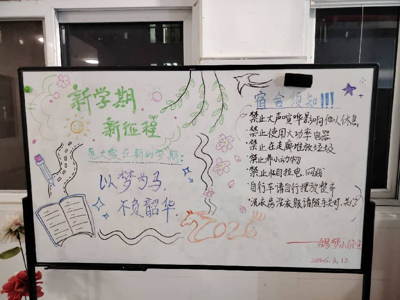 新学期
新征程
愿大家在新的学期:
以梦为马,
不负韶华
2026
宿舍须知!!!
·禁止大声喧哗影响他人休息
·禁止使用大功率电器
·禁止在走廊堆放垃圾
·禁止养小动物
·禁止私自拉电、网线
·自行车请自行摆放整齐
·洗衣房洗衣服请随手关灯、
2026.3.12